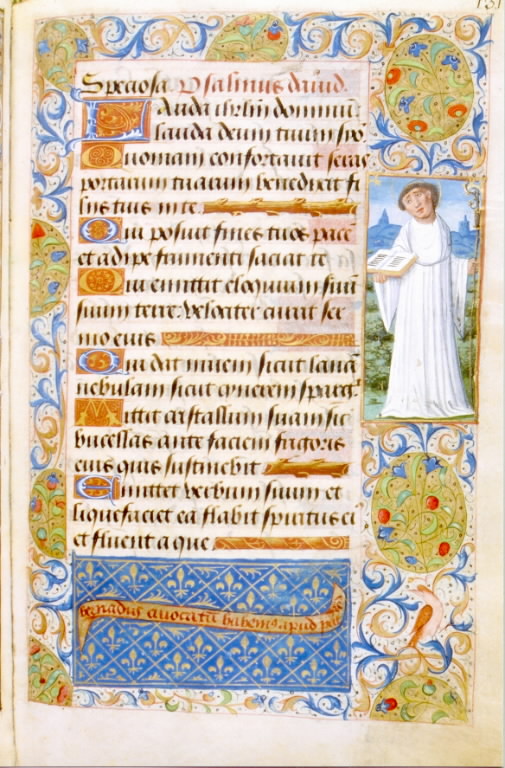 131
Speciosa Psalmus dauid.
Lauda ihrlm dominū
lauda deum tuum syo
Quoniam confortauit seras
portarum tuarum benedixit fi
liis tuis in te
Qui posuit fines tuos pacē
et adipe frumenti saciat te
Qui emittit eloquium suū
suum terre velociter currit ser
mo eius
Qui dat niuem sicut lanā
nebulam sicut cinerem sparg
Mittit cristallum suam sic
bucellas ante faciem frigoris
eius quis sustinebit
Emittet verbum suum et
liquefaciet ea flabit spiritus ei
et fluent aque
bernadus auocatū habem9 apud